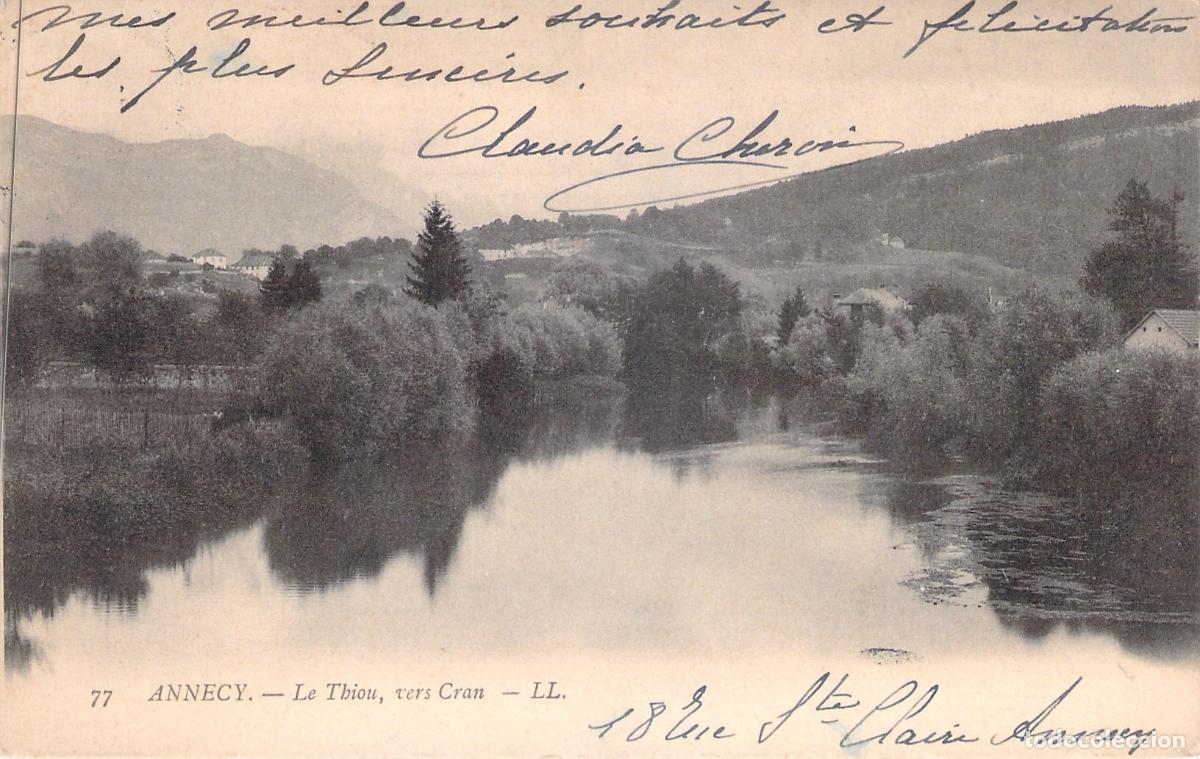 mes meilleurs souhaits et felicitation
les plus sincères.
Claudia Chervin
77 ANNECY. — Le Thiou, vers Cran — LL.
18 Rue Ste Claire Annecy
todocoleccion